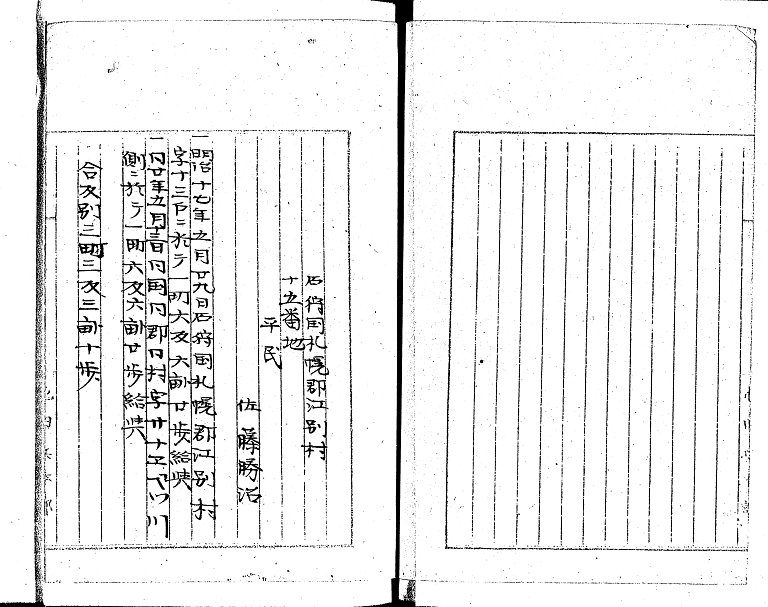 石狩国札幌郡江別村
十五番地
平民
佐藤勝治
一明治十七年五月廿九日石狩国札幌郡江別村
字十三戸ニ於テ一町六反六畝廿歩給与
一同廿年五月 日同国同郡同村字
側ニ於テ一町六反六畝廿歩給与
合反別三町三反三畝十歩